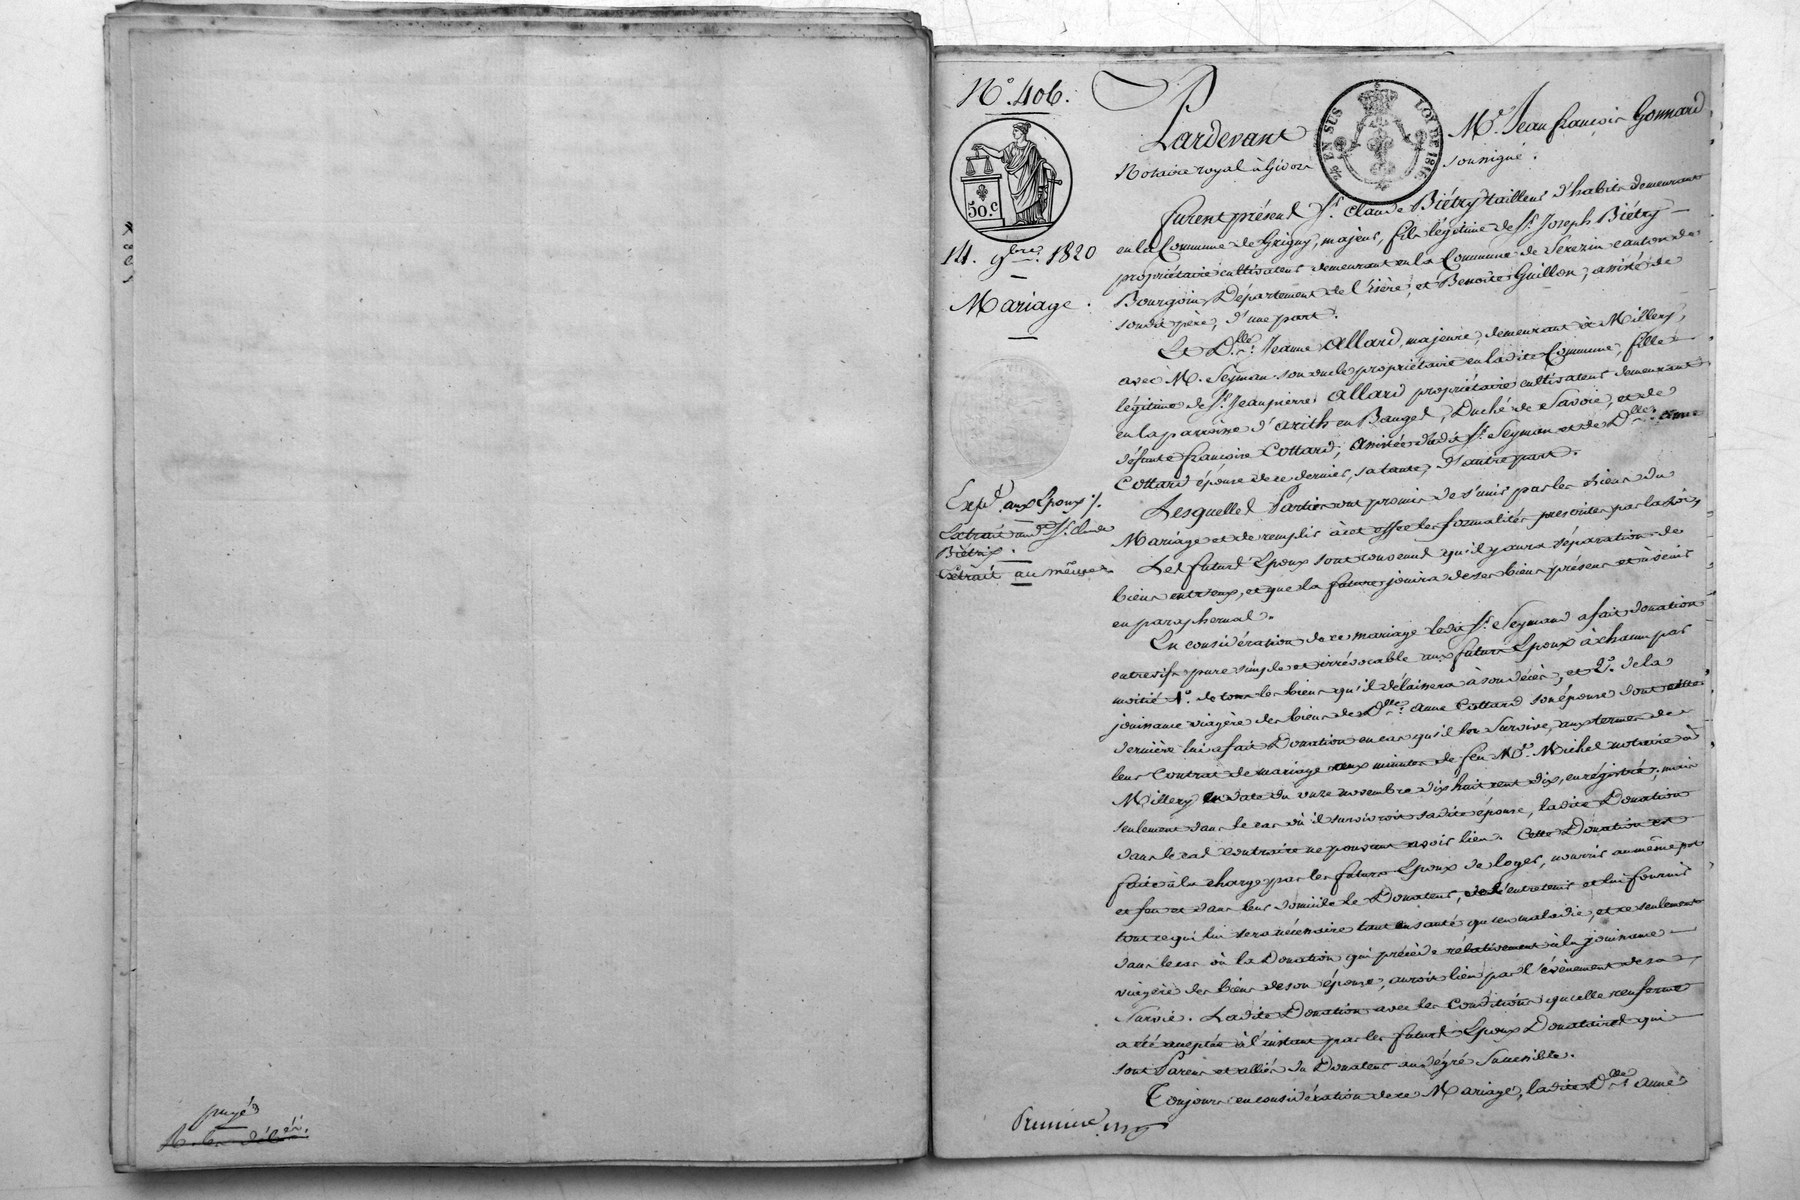 payé
N.º 406.
50.c
14. 9bre. 1820
Mariage.
Expd. aux Epoux ./.
Extrait aud. Sr. Claude
Biétrix.
Extrait au même
2/5 EN SUS LOI DE 1816.
Pardevant Me. Jean françois Gonnard
Notaire royal à Givors soussigné.
furent présens Sr. Claude Biétry tailleur d'habits demeurant
en la Commune de Grigny, majeur, fils légitime de Sr. Joseph Biétry
propriétaire cultivateur demeurant en la Commune de Serezin canton de
Bourgoin Département de l'isère, et Benoite Guillon, assisté de
sondit père, d'une part.
Et Dlle. Jeanne Allard, majeure, demeurant à Millery,
avec M. Seyman son oncle propriétaire en ladite Commune, fille
légitime de Sr. Jean pierre Allard propriétaire cultivateur demeurant
en la paroisse d'arith en Bauges, Duché de Savoie, et de
défunte françoise Collard, assistée dudit Sr. Seyman et de Dlle. anne
Collard épouse de ce dernier, sa tante, d'autre part.
Lesquelles Parties ont promis de s'unir par les liens du
Mariage et de remplir à cet effet les formalités prescrites par la loi,
Les futurs Epoux sont convenus qu'il y aura séparation de
biens entr'eux, et que la future jouira de ses biens présens et à venir
en paraphernal.
En considération de ce mariage ledit Sr. Seymand a fait donation
entrevifs pure simple et irrévocable aux futurs Epoux à chacun par
moitié 1º. de tous les biens qu'il délaissera à son décès, et 2º. de la
jouissance viagère des biens de Dlle. Anne Collard son épouse dont cette
dernière lui a fait Donation en cas qu'il lui Survive, aux termes de
leur Contrat de mariage aux minutes de feu Me. Michel notaire à
Millery en date du onze novembre dix huit cent dix, enrégistré; mais
seulement dans le cas où il survivroit sadite épouse, ladite Donation
dans le cas Contraire ne pouvant avoir lieu. Cette Donation est
faite à la charge par les futurs Epoux de loger, nourrir au même pot
et feu et dans leur domicile le Donateur, de l'entretenir et lui fournir
tout ce qui lui sera nécessaire tant en santé qu'en maladie, et ce seulement
dans le cas où la Donation qui précède rélativement à la jouissance
viagère des biens de son épouse, auroit lieu par l'évènement de sa
Survie. Ladite Donation avec les Conditions qu'elle renferme
a été acceptée à l'instant par les futurs Epoux Donataires qui
sont Parens et alliés du Donateur au dégré Successible.
Toujours en considération de ce Mariage, ladite Dlle. Anne
Première